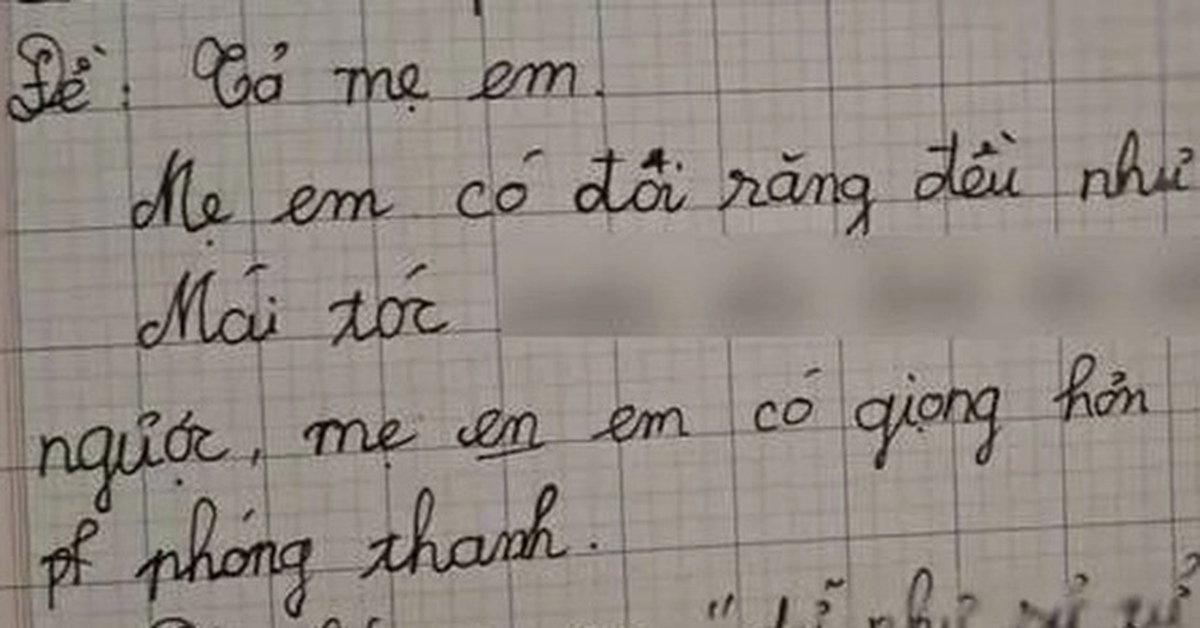 Đề: Tả mẹ em.
Mẹ em có đôi răng đều như
Mái tóc
ngược, mẹ en em có giọng hơn
pf phóng thanh.